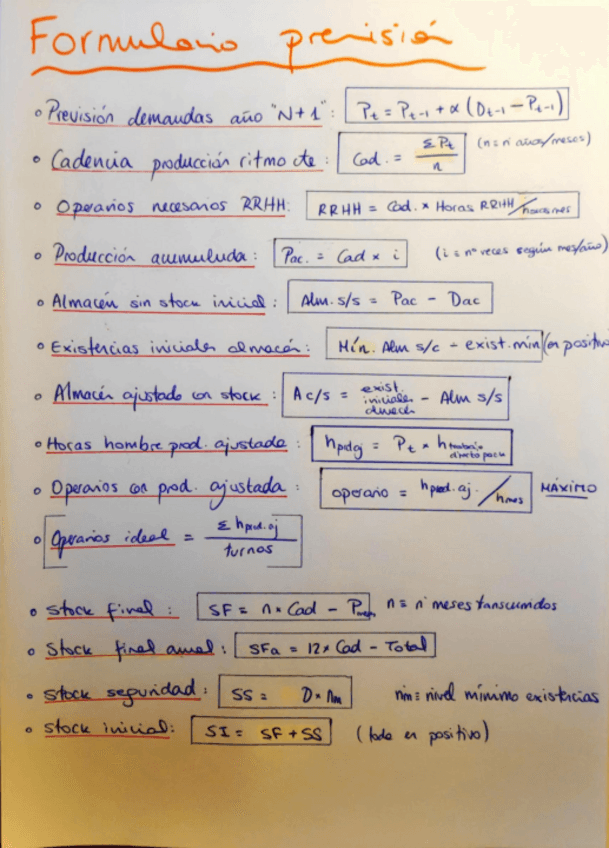 Formulario previsión
• Previsión demandas año "N+1": Pt = Pt-1 + α (Dt-1 - Pt-1)
• Cadencia producción ritmo cte: Cad. = Σ Pt / n (n = nº años/meses)
• Operarios necesarios RRHH: RRHH = Cad. × Horas RRHH / horas mes
• Producción acumulada: Pac. = Cad × i (i = nº veces según mes/año)
• Almacén sin stock inicial: Alm. s/s = Pac - Dac
• Existencias iniciales almacén: Mín. Alm s/c - exist. mín (en positivo
• Almacén ajustado con stock: A c/s = exist. iniciales - Alm s/s
• Horas hombre prod. ajustada: h = Pt × h trabajo directo
• Operarios con prod. ajustada: operario = h prod. aj. / h mes MÁXIMO
• Operarios ideal = Σ h prod. aj / turnos
• Stock final: SF = n × Cad - P n = nº meses transcurridos
• Stock final anual: SFa = 12 × Cad - Total
• Stock seguridad: SS = D × nm nm = nivel mínimo existencias
• Stock inicial: SI = SF + SS (todo en positivo)